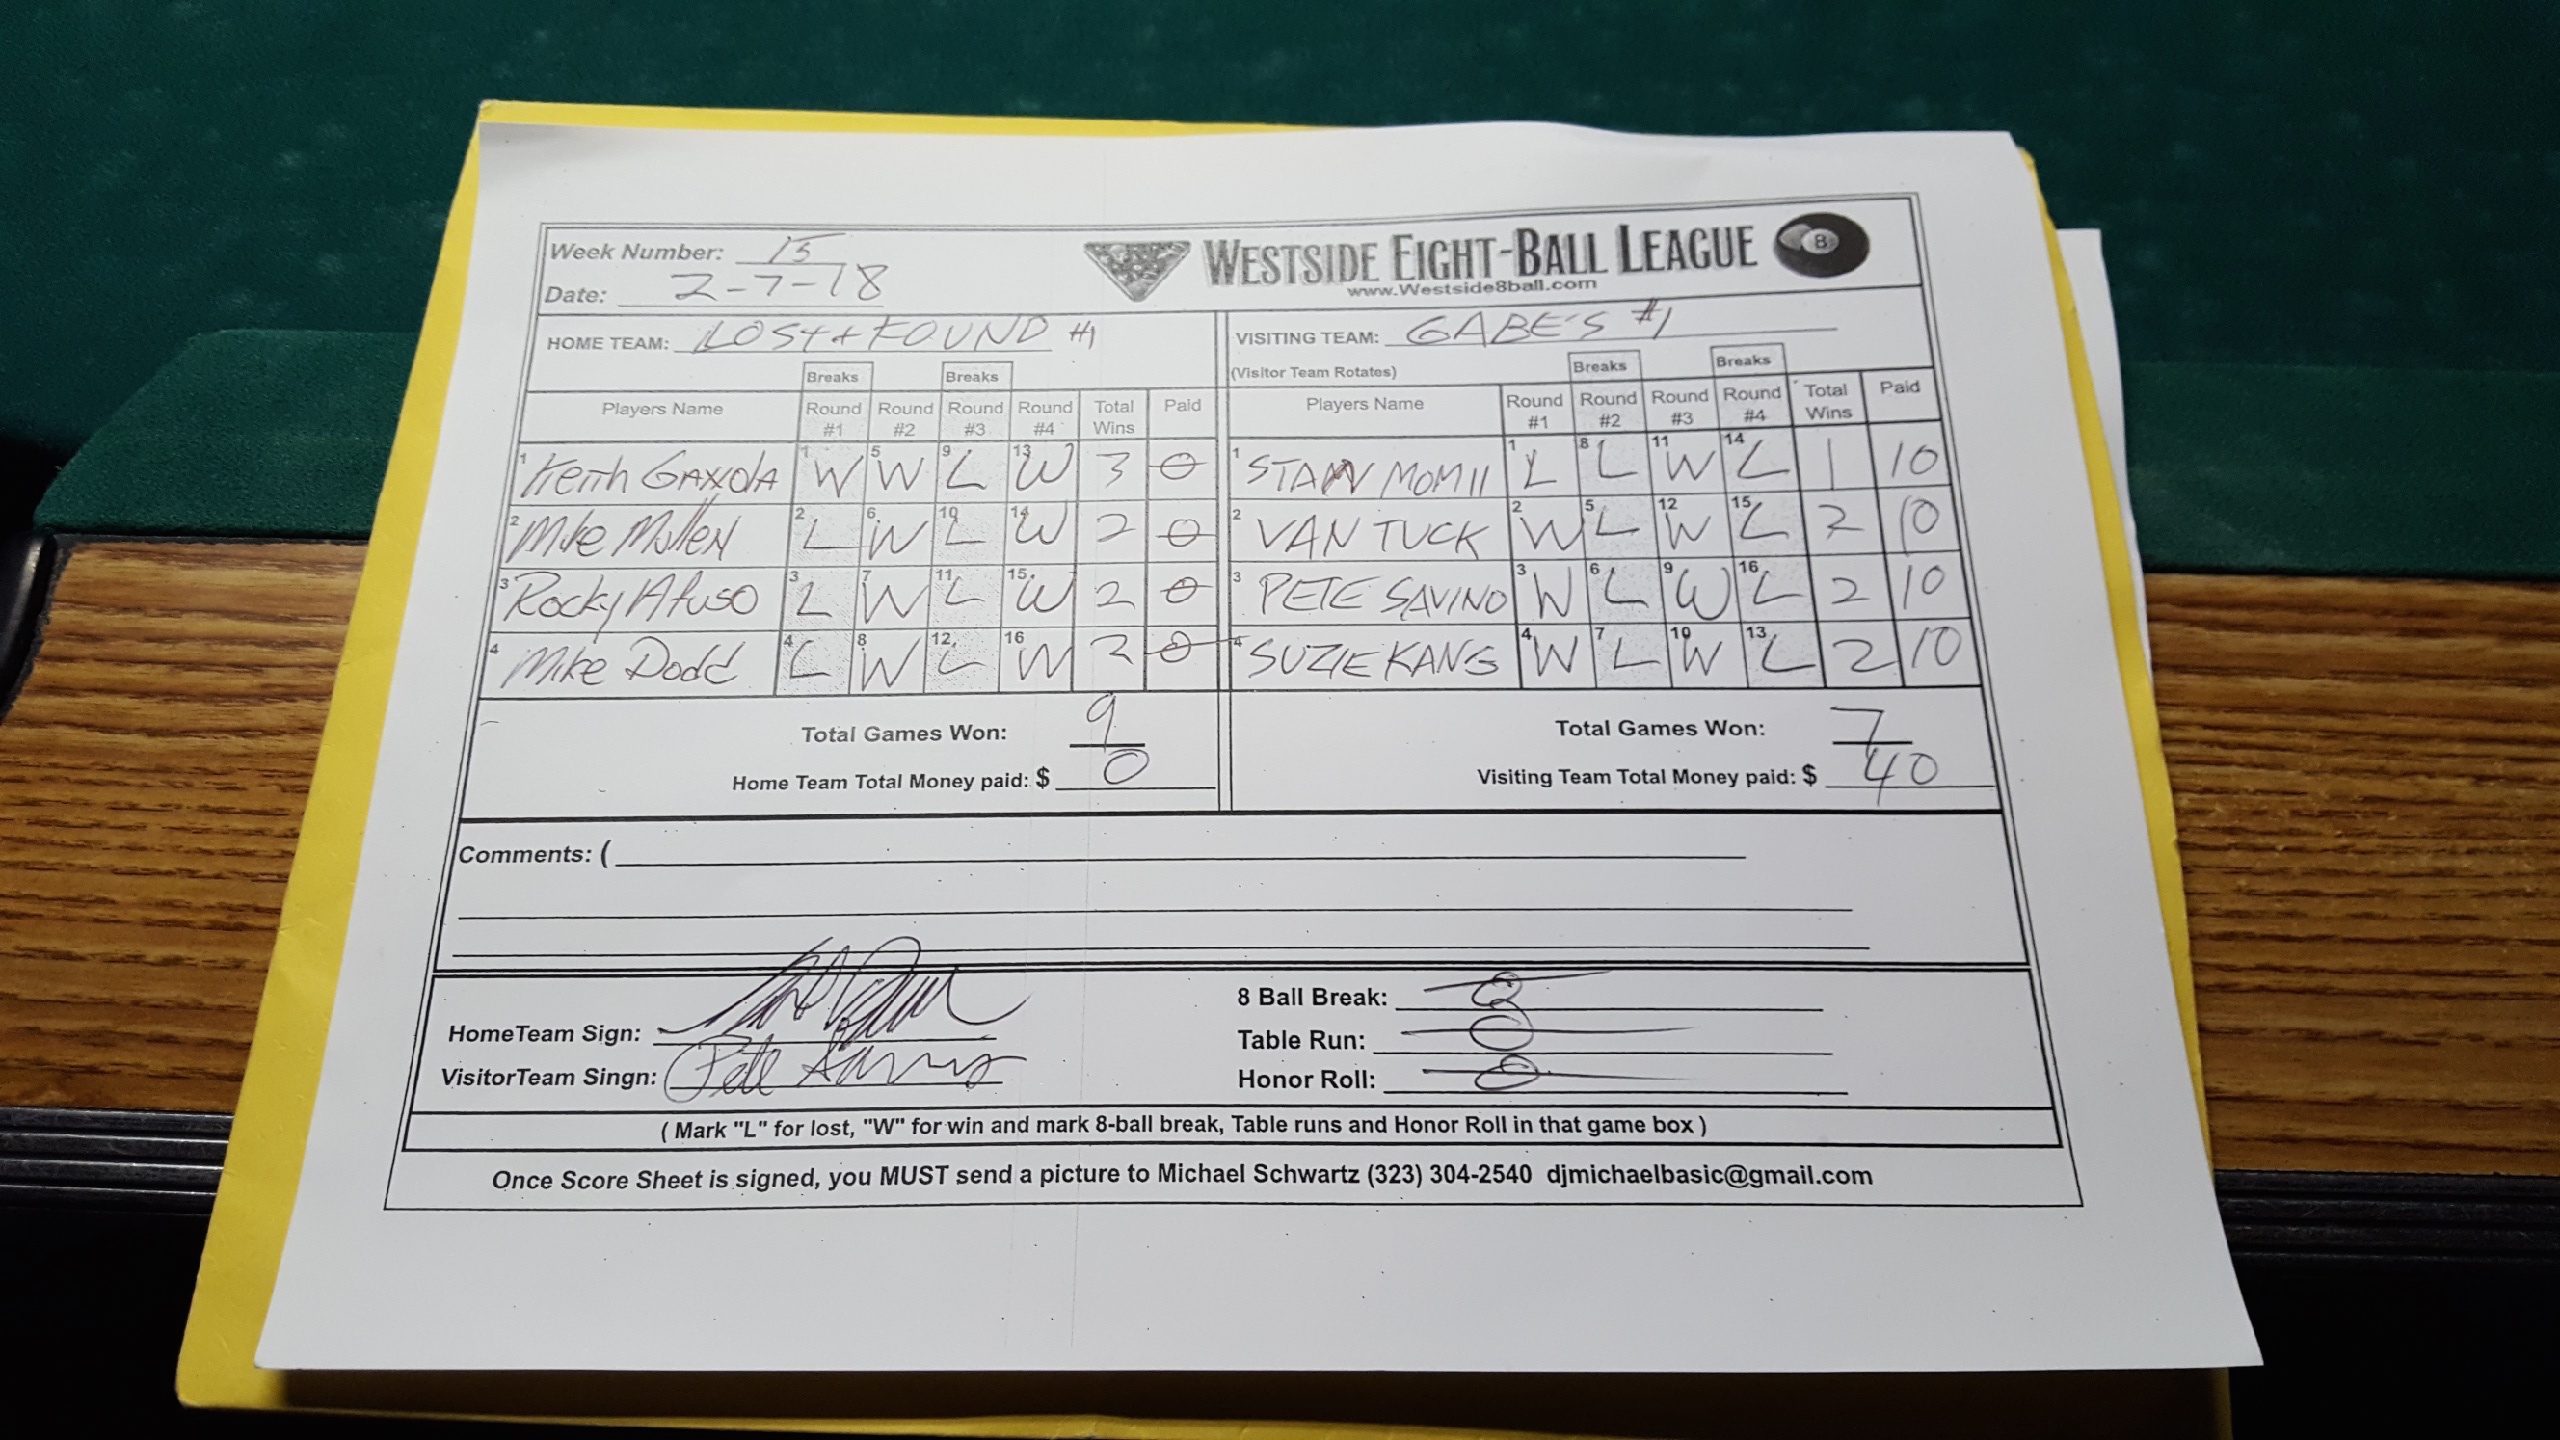 Week Number: 15
Date: 2-7-18
WESTSIDE EIGHT-BALL LEAGUE 8
www.Westside8ball.com
HOME TEAM: LOST + FOUND #1
VISITING TEAM: GABE'S #1
(Visitor Team Rotates)
Breaks Breaks
Breaks Breaks
Players Name Round #1 Round #2 Round #3 Round #4 Total Wins Paid
Players Name Round #1 Round #2 Round #3 Round #4 Total Wins Paid
1 Keith GAXOLA 1 W 5 W 9 L 13 W 3 0
1 STAN MOMII 1 L 8 L 11 W 14 L 1 10
2 Mike Mullen 2 L 6 W 10 L 14 W 2 0
2 VAN TUCK 2 W 5 L 12 W 15 L 2 10
3 Rocky Afuso 3 L 7 W 11 L 15 W 2 0
3 PETE SAVINO 3 W 6 L 9 W 16 L 2 10
4 Mike Dodd 4 L 8 W 12 L 16 W 2 0
4 SUZIE KANG 4 W 7 L 10 W 13 L 2 10
Total Games Won: 9
Total Games Won: 7
Home Team Total Money paid: $ 0
Visiting Team Total Money paid: $ 40
Comments: (
HomeTeam Sign:
8 Ball Break: 0
Table Run: 0
VisitorTeam Singn: Pete Savino
Honor Roll: 0
( Mark "L" for lost, "W" for win and mark 8-ball break, Table runs and Honor Roll in that game box )
Once Score Sheet is signed, you MUST send a picture to Michael Schwartz (323) 304-2540 djmichaelbasic@gmail.com